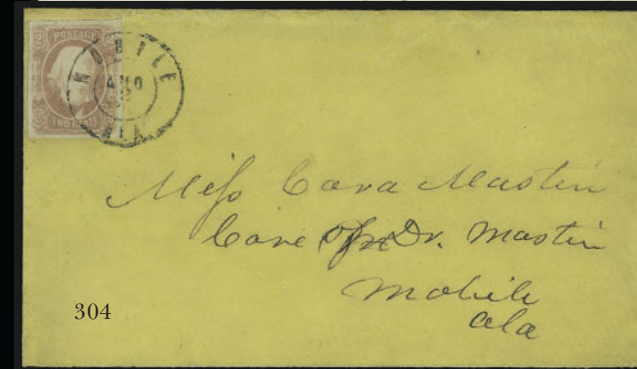 POSTAGE
TWO CENTS
MOBILE
ALA
Miss Cara Mastin
Care of Dr. Mastin
Mobile
Ala
304